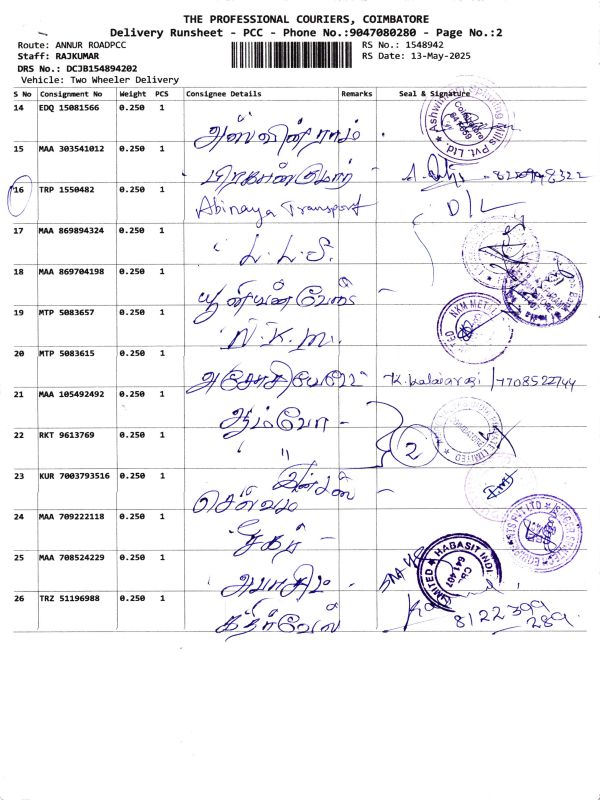 THE PROFESSIONAL COURIERS, COIMBATORE
Delivery Runsheet - PCC - Phone No.:9047080280 - Page No.:2
Route: ANNUR ROADPCC
RS No.: 1548942
Staff: RAJKUMAR
RS Date: 13-May-2025
DRS No.: DCJB154894202
Vehicle: Two Wheeler Delivery
S No Consignment No Weight PCS Consignee Details Remarks Seal & Signature
14 EDQ 15081566 0.250 1
அஸ்வின்ராம்
15 MAA 303541012 0.250 1
16 TRP 1550482 0.250 1
Abinaya Transport D/L
17 MAA 869894324 0.250 1
L.L.S.
18 MAA 869704198 0.250 1
19 MTP 5083657 0.250 1
N.K.M.
NKM
20 MTP 5083615 0.250 1
K.kalaiarasi / 7708522744
21 MAA 105492492 0.250 1
22 RKT 9613769 0.250 1
" 2
23 KUR 7003793516 0.250 1
செல்வம்
24 MAA 709222118 0.250 1
சேகர்
25 MAA 708524229 0.250 1
HABASIT INDI
641 407
26 TRZ 51196988 0.250 1
கதிர்வேல்
8122399
289